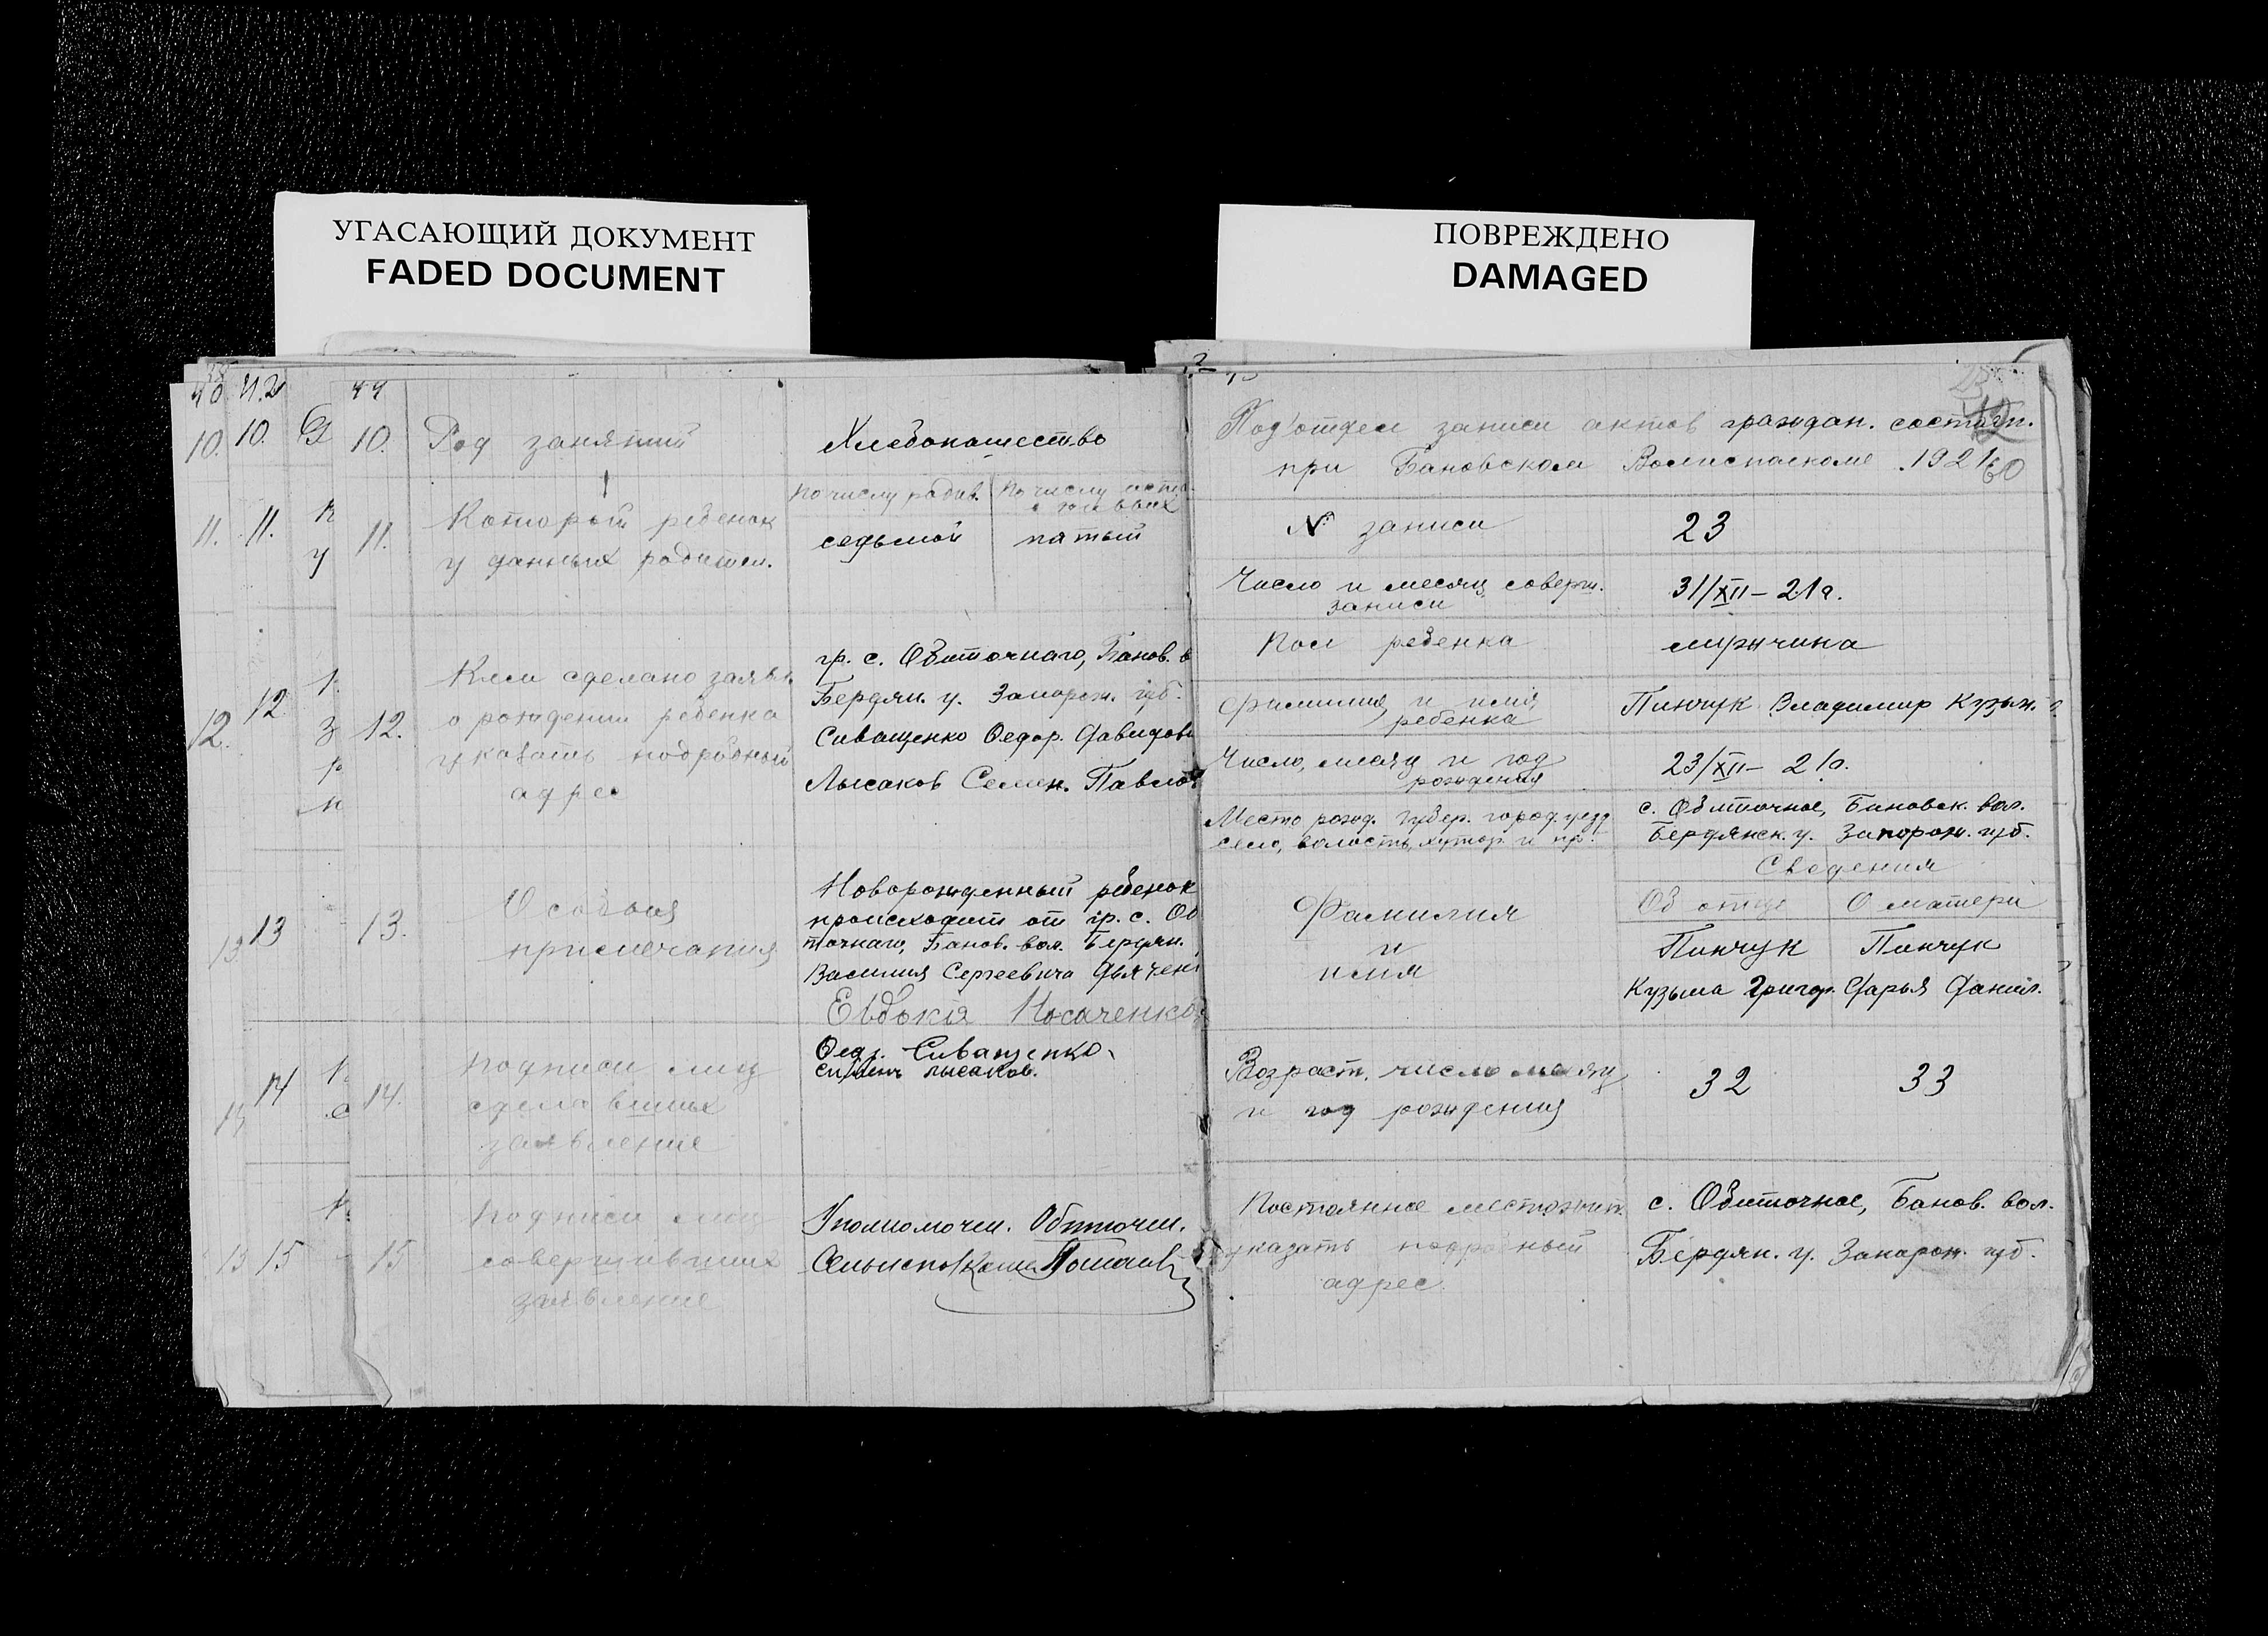 УГАСАЮЩИЙ ДОКУМЕНТ
FADED DOCUMENT
ПОВРЕЖДЕНО
DAMAGED
40 44
10. 10. 10. Род занятий
Хлебопашество
По числу родив. По числу
11. 11. 11. Который ребенок
у данных родител.
седьмой пятый
12. 12 12. Кем сделано заявл.
о рождении ребенка
указать подробный
адрес
гр. с. Обиточнаго, Банов. в
Бердян. у. Запорож. губ.
Сиващенко Федор. Давидов
Лысаков Семен. Павлов
13 13 13. Особыя
примечания
Новорожденный ребенок
происходит от гр. с. Об
точнаго, Банов. вол. Бердян.
Василия Сергеевича Дьячен
Евдокія Носаченко
14 14. Подписи лиц
сделавших
заявление
Сиващенко
Лысаков.
13 15 15 Подписи лиц
совершивших
заявление
Уполномочен. Обиточн.
Сельисполкома
Подотдел записи актов граждан. состоян.
при Бановском Волисполкоме 1921
60
№ записи 23
Число и месяц соверш.
записи
31/XII – 21 г.
Пол ребенка мужчина
Фамилия и имя
ребенка
Пинчук Владимир Кузьм.
Число, месяц и год
рождения
23/XII – 21 г.
Место рожд. губер. город. уезд
село, волость, хутор. и пр.
с. Обиточное, Бановск. вол.
Бердянск. у. Запорож. губ.
Сведения
Об отце О матери
Фамилия
и
имя
Пинчук Пинчук
Кузьма Григор. Дарья Данил.
Возраст. число месяц
и год рождения
32 33
Постоянное местожит.
указать подробный
адрес
с. Обиточное, Банов. вол.
Бердян. у. Запорож. губ.